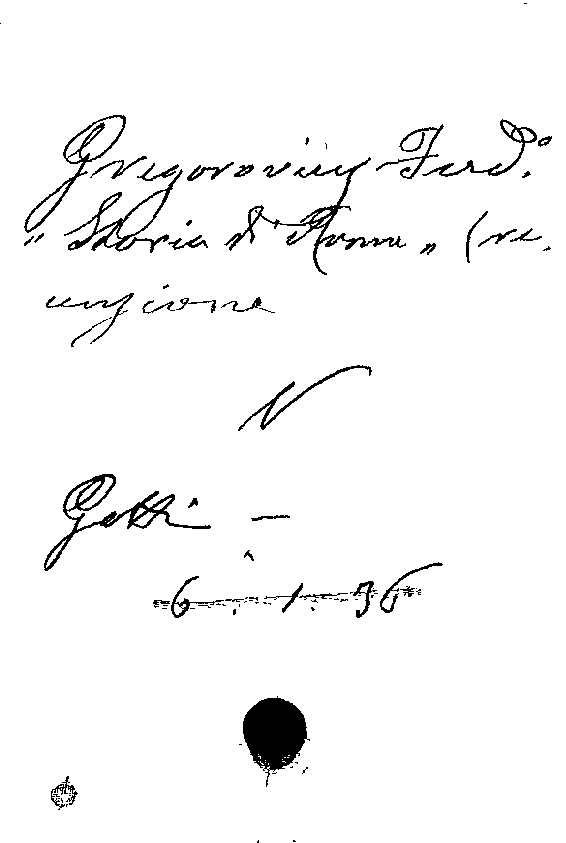 Gregorovius Ferd.º
"Storia di Roma" (re,
cenzione
V
Gatti -
6.1.36